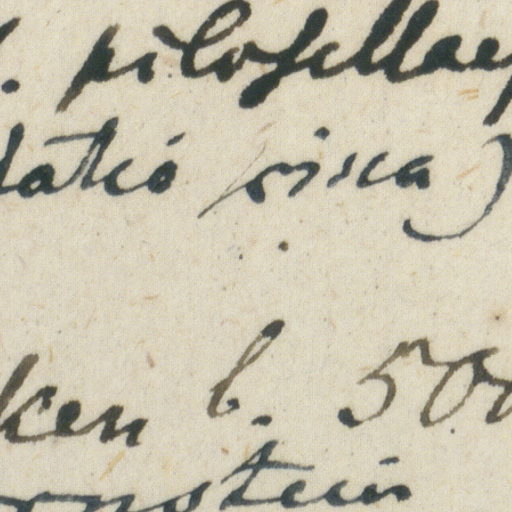 . pilosellae
latio sicca)
ken b. 500
rnstein